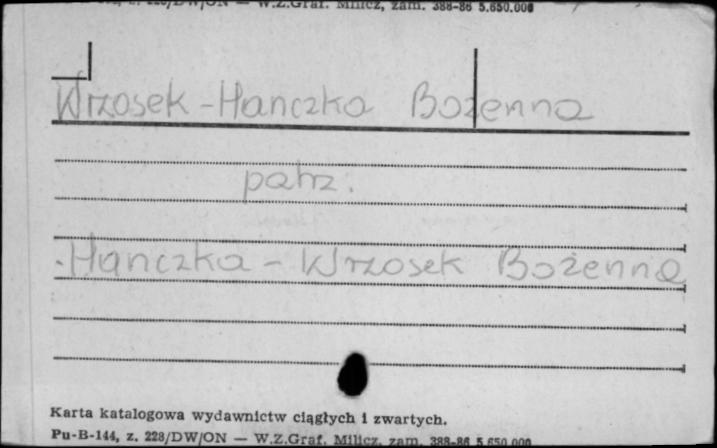 z. 228/DW/ON — W.Z.Graf. Milicz, zam. 388-86 5.650.000
Wrzosek-Hanczka Bożenna
patrz:
Hanczka-Wrzosek Bożenna
Karta katalogowa wydawnictw ciągłych i zwartych.
Pu-B-144, z. 228/DW/ON — W.Z.Graf. Milicz, zam. 388-86 5.650.000